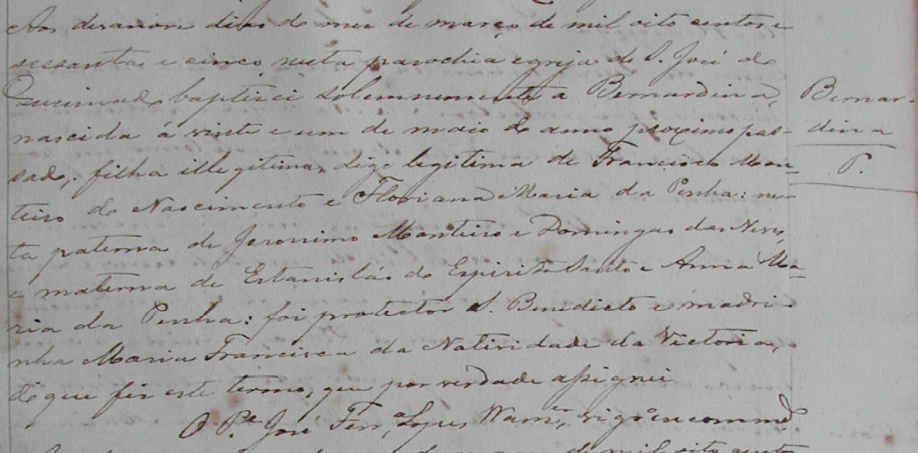 Aos desanove dias do mez de março de mil oito centos e
sessenta e cinco, nesta parochia egreja de S. José do
Queimado baptizei solemnemente a Bernardina,
nascida á vinte e um de maio do anno proximo pas-
sado; filha illegitima, digo legitima de Francisco Mon-
teiro do Nascimento e Floriana Maria da Penha: ne-
ta paterna de Jeronimo Monteiro e Domingas das Neves,
e materna de Estanisláo do Espirito Santo e Anna Ma-
ria da Penha: foi protector S. Benedicto e madri-
nha Maria Francisca da Natividade da Victoria,
de que fiz este termo, que por verdade assignei
O Pe. José Ferra. Lopes Wanzer, vigro. encommdo.
Bernar-
dina
P.
de mil oito cento